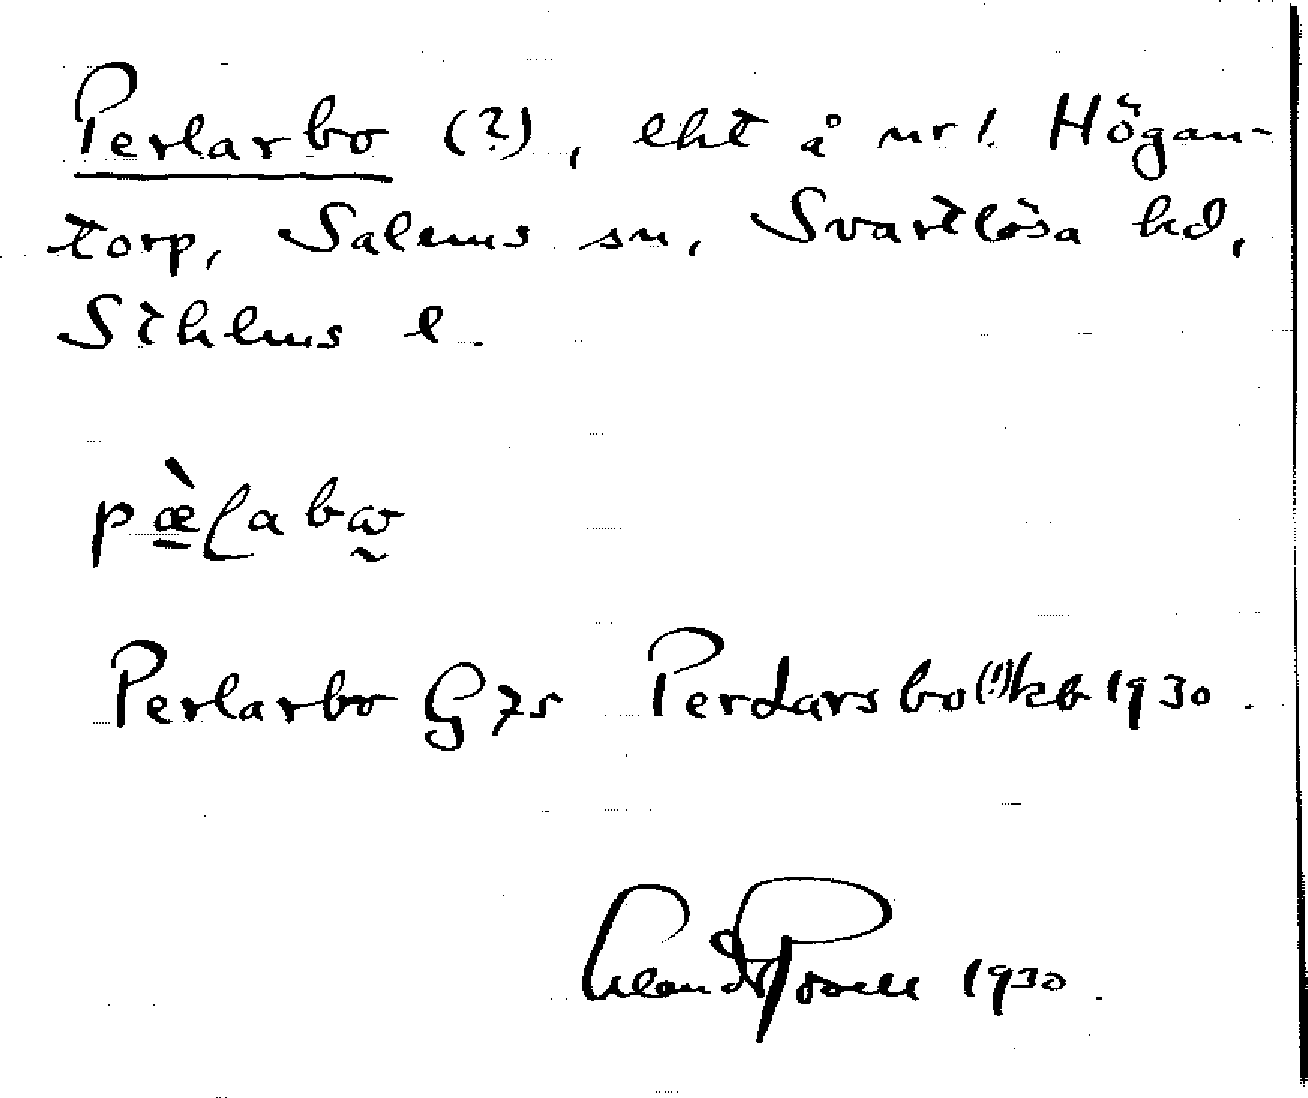 Perlarbo (?), lht å nr 1 Högan-
torp, Salems sn, Svartlösa hd,
Sthlms l.
pæ̀labω
Perlarbo G 75 Perdarsbo (!) kb 1930.
1930.